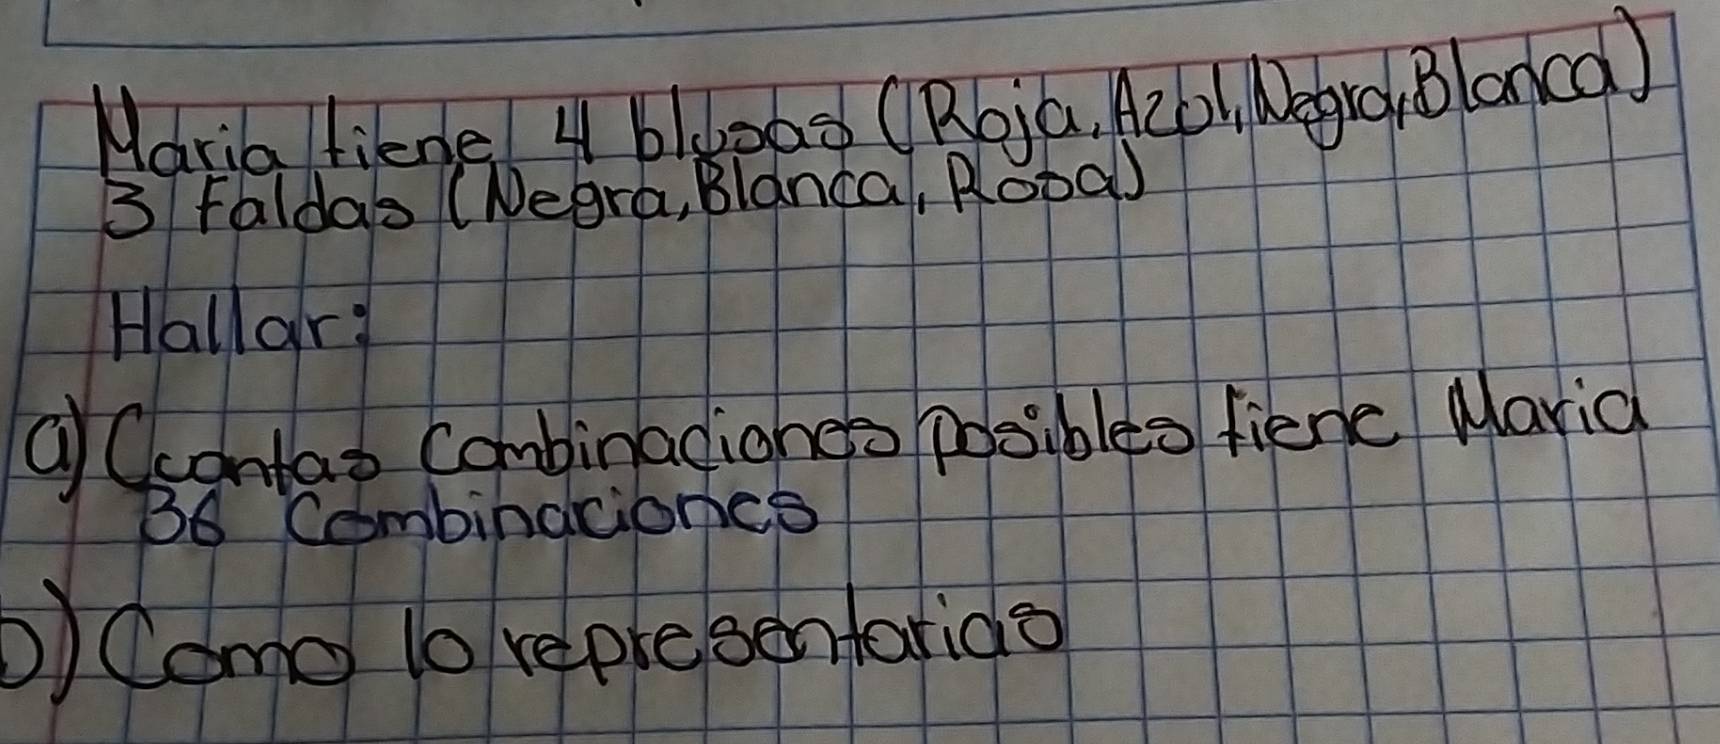 Maria tiene 4 blusas (Roja, Azul, Negra, Blanca)
3 Faldas (Negra, Blanca, Rosa)
Hallar:
a) Cuantas Combinaciones posibles tiene Maria
36 Combinaciones
b) Como lo representarias